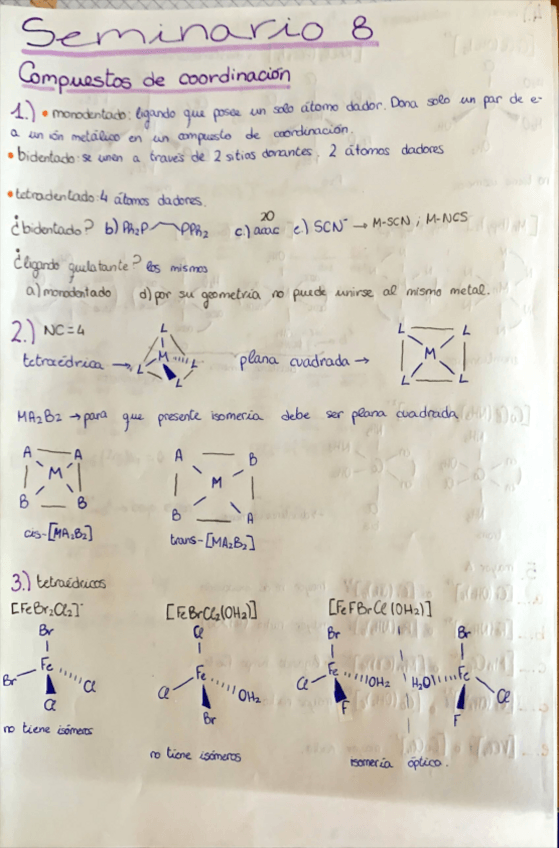 Seminario 8
Compuestos de coordinación
1.) • monodentado: ligando que posee un solo átomo dador. Dona solo un par de e-
a un ión metálico en un compuesto de coordinación.
• bidentado: se unen a traves de 2 sitios donantes, 2 átomos dadores
• tetradentado: 4 átomos dadores.
¿bidentado? b) Ph₂P PPh₂ c) acac e) SCN⁻ → M-SCN ; M-NCS
¿ligando quelatante? los mismos
a) monodentado d) por su geometría no puede unirse al mismo metal.
2.) NC=4
tetraédrica → L M L L L plana cuadrada → L L M L L
MA₂B₂ → para que presente isomería debe ser plana cuadrada
A A A B
M M
B B B A
cis-[MA₂B₂] trans-[MA₂B₂]
3.) tetraédricos
[FeBr₂Cl₂]⁻ [FeBrCl₂(OH₂)] [FeFBrCl(OH₂)]
Br Cl Br Br
Fe Fe Fe OH₂ H₂O Fe
Br Cl Cl OH₂ Cl Cl
Cl Br F F
no tiene isómeros no tiene isómeros isomería óptica.